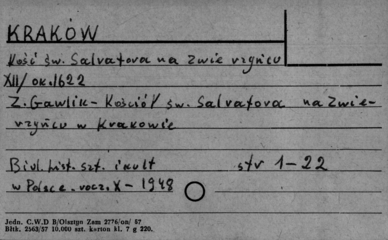 KRAKÓW
Kość św. Salvatora na Zwie rzyńcu
XII/ok.1622
Z. Gawlik - Kościół św. Salvatora na Zwie-
rzyńcu w Krakowie
Biul. hist. szt. i kult str 1-22
w Polsce. rocz. X - 1948
Jedn. C.W.D B/Olsztyn Zam 2776/on/ 57
Bltk. 2563/57 10.000 szt. karton kl. 7 g 220.